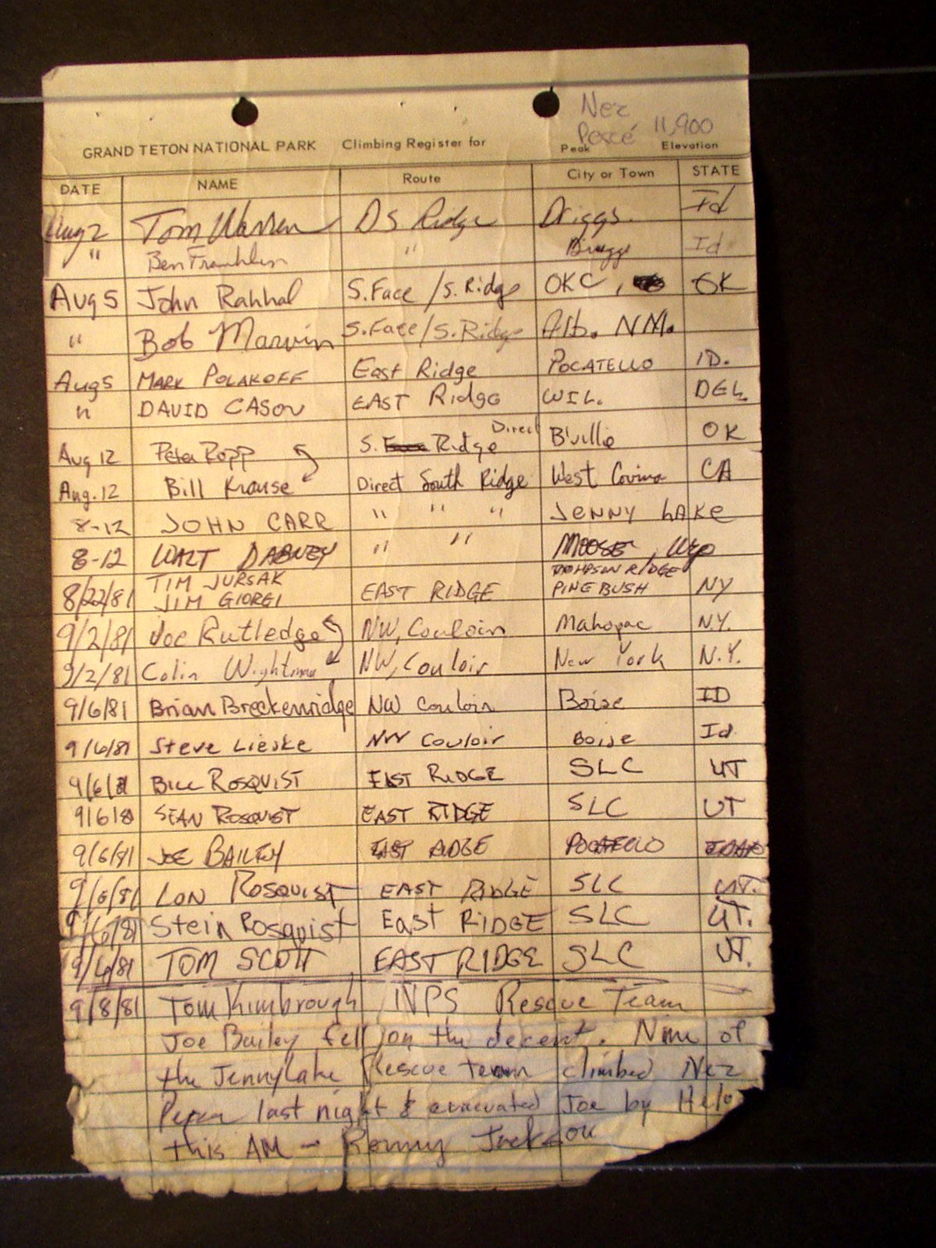 Nez
Percé 11,900
GRAND TETON NATIONAL PARK Climbing Register for Peak Elevation
DATE NAME Route City or Town STATE
Aug 2 Tom Warren DS Ridge Driggs. Id
" Ben Franklin " Driggs Id
Aug 5 John Rahhal S. Face / S. Ridge OKC, OK
" Bob Marvin S. Face / S. Ridge Alb. N.M.
Aug 5 MARK POLAKOFF East Ridge POCATELLO ID.
" DAVID CASON EAST Ridge WIL. DEL.
Aug 12 Peter Ropp S. Ridge Direct B'ville OK
Aug. 12 Bill Krause Direct South Ridge West Covina CA
8-12 JOHN CARR " " " JENNY LAKE
8-12 WALT DABNEY " " MOOSE, Wyo
8/22/81 TIM JURSAK EAST RIDGE THOMPSON RIDGE NY
JIM GIORGI PINE BUSH
9/2/81 Joe Rutledge NW, Couloir Mahopac N.Y.
9/2/81 Colin Wightman NW, Couloir New York N.Y.
9/6/81 Brian Breckenridge NW Couloir Boise ID
9/6/81 Steve Lieske NW Couloir Boise Id
9/6/81 BILL ROSQUIST EAST RIDGE SLC UT
9/6/8 SEAN ROSQUIST EAST RIDGE SLC UT
9/6/81 JOE BAILEY EAST RIDGE POCATELLO IDAHO
9/6/81 LON ROSQUIST EAST RIDGE SLC UT.
9/6/81 Stein Rosquist East RIDGE SLC UT.
9/6/81 TOM SCOTT EAST RIDGE SLC UT.
9/8/81 Tom Kimbrough NPS Rescue Team
Joe Bailey fell on the decent. Nine of
the Jenny Lake Rescue team climbed Nez
Perce last night & evacuated Joe by Helo
this AM - Renny Jackson